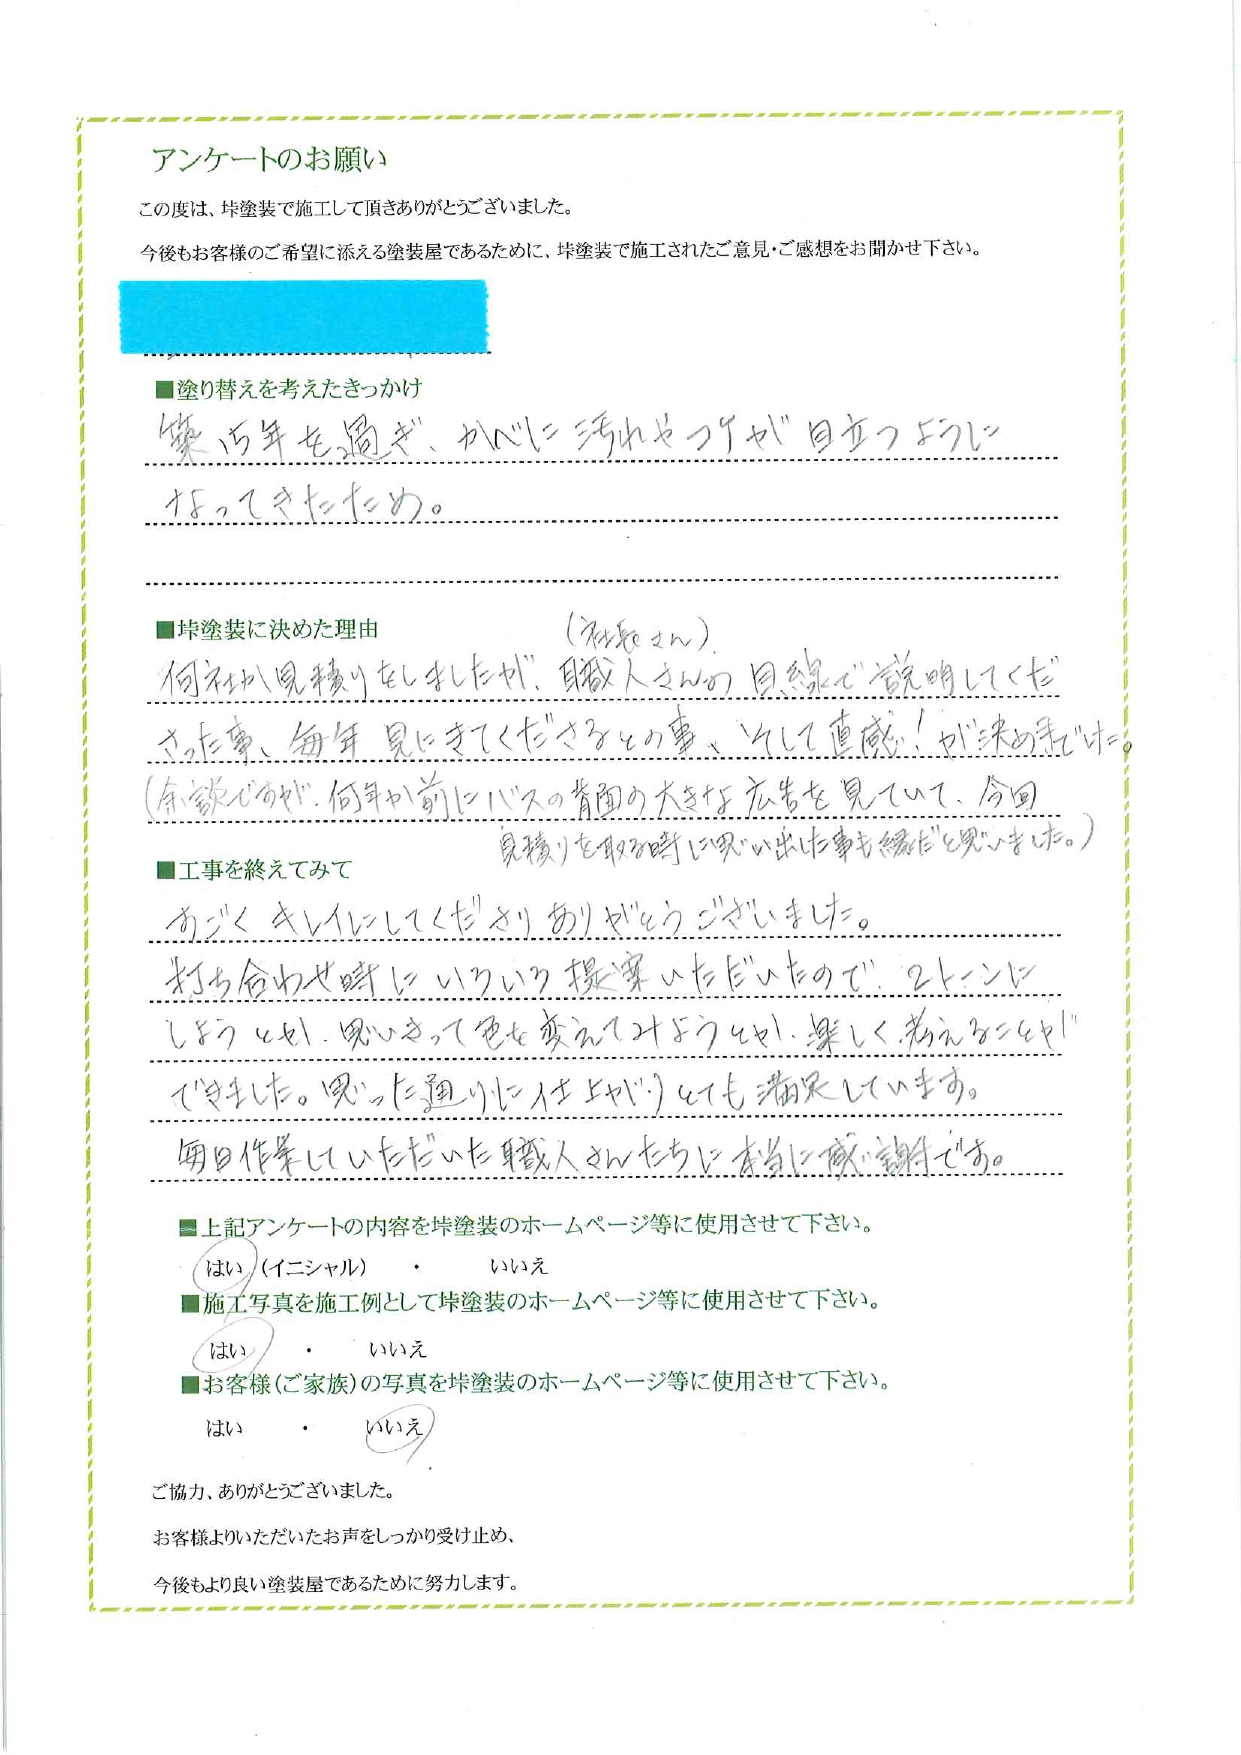 アンケートのお願い
この度は、垰塗装で施工して頂きありがとうございました。
今後もお客様のご希望に添える塗装屋であるために、垰塗装で施工されたご意見・ご感想をお聞かせ下さい。
■塗り替えを考えたきっかけ
築15年を過ぎ、かべに汚れやコケが目立つように
なってきたため。
■垰塗装に決めた理由
(社長さん)
何社か見積りをしましたが、職人さんの目線で説明してくだ
さった事、毎年見にきてくださるとの事、そして直感!が決め手でした。
(余談ですが、何年か前にバスの背面の大きな広告を見ていて、今回
見積りを取る時に思い出した事も縁だと思いました。)
■工事を終えてみて
すごくキレイにしてくださりありがとうございました。
打ち合わせ時にいろいろ提案いただいたので、2トーンに
しようとか、思いきって色を変えてみようとか、楽しく考えることが
できました。思った通りに仕上がりとても満足しています。
毎日作業していただいた職人さんたちに本当に感謝です。
■上記アンケートの内容を垰塗装のホームページ等に使用させて下さい。
はい(イニシャル) ・ いいえ
■施工写真を施工例として垰塗装のホームページ等に使用させて下さい。
はい ・ いいえ
■お客様(ご家族)の写真を垰塗装のホームページ等に使用させて下さい。
はい ・ いいえ
ご協力、ありがとうございました。
お客様よりいただいたお声をしっかり受け止め、
今後もより良い塗装屋であるために努力します。